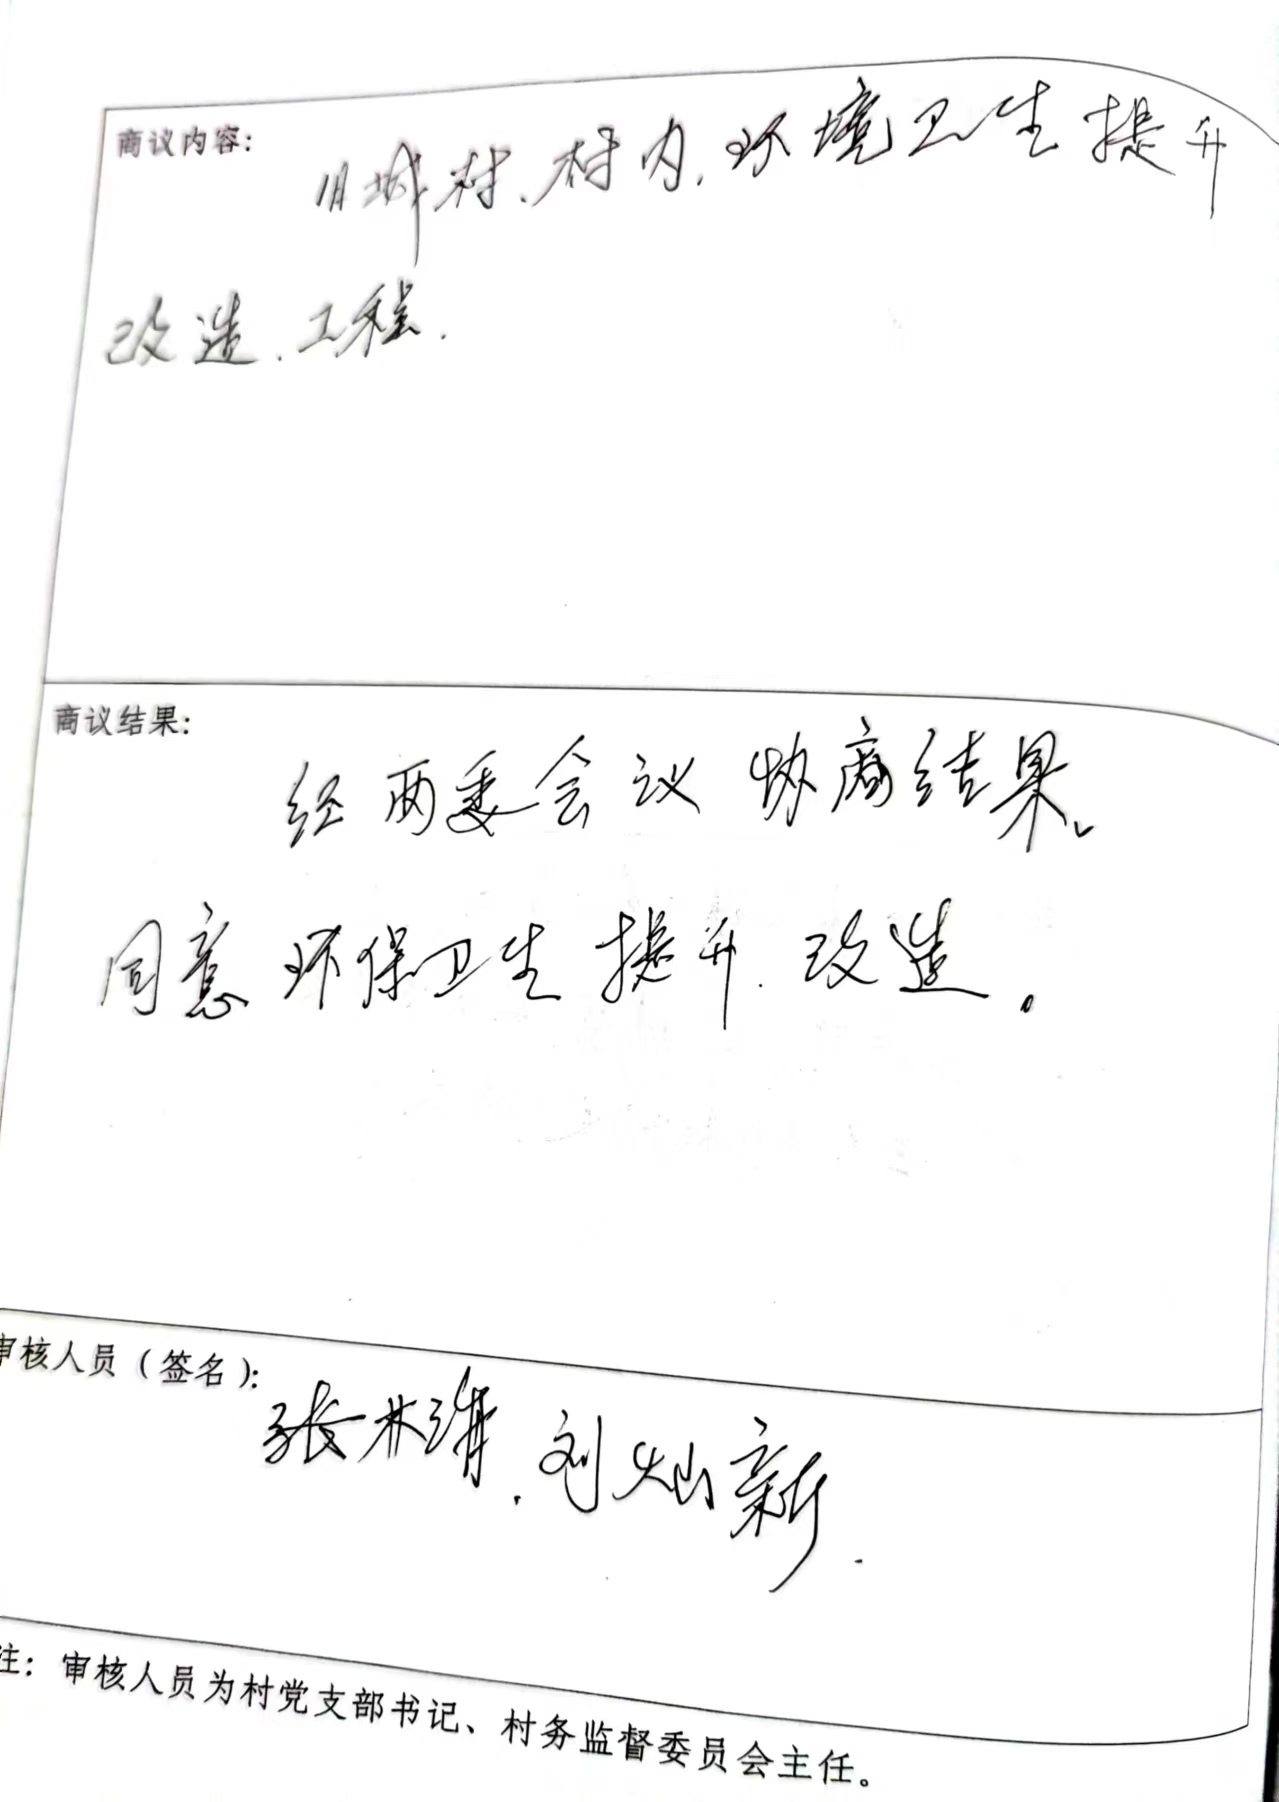 商议内容:
旧城村、村内、环境卫生提升
改造、工程.
商议结果:
经两委会议协商结果、
同意环保卫生提升.改造。
审核人员（签名）:
张林清.刘灿新.
注：审核人员为村党支部书记、村务监督委员会主任。